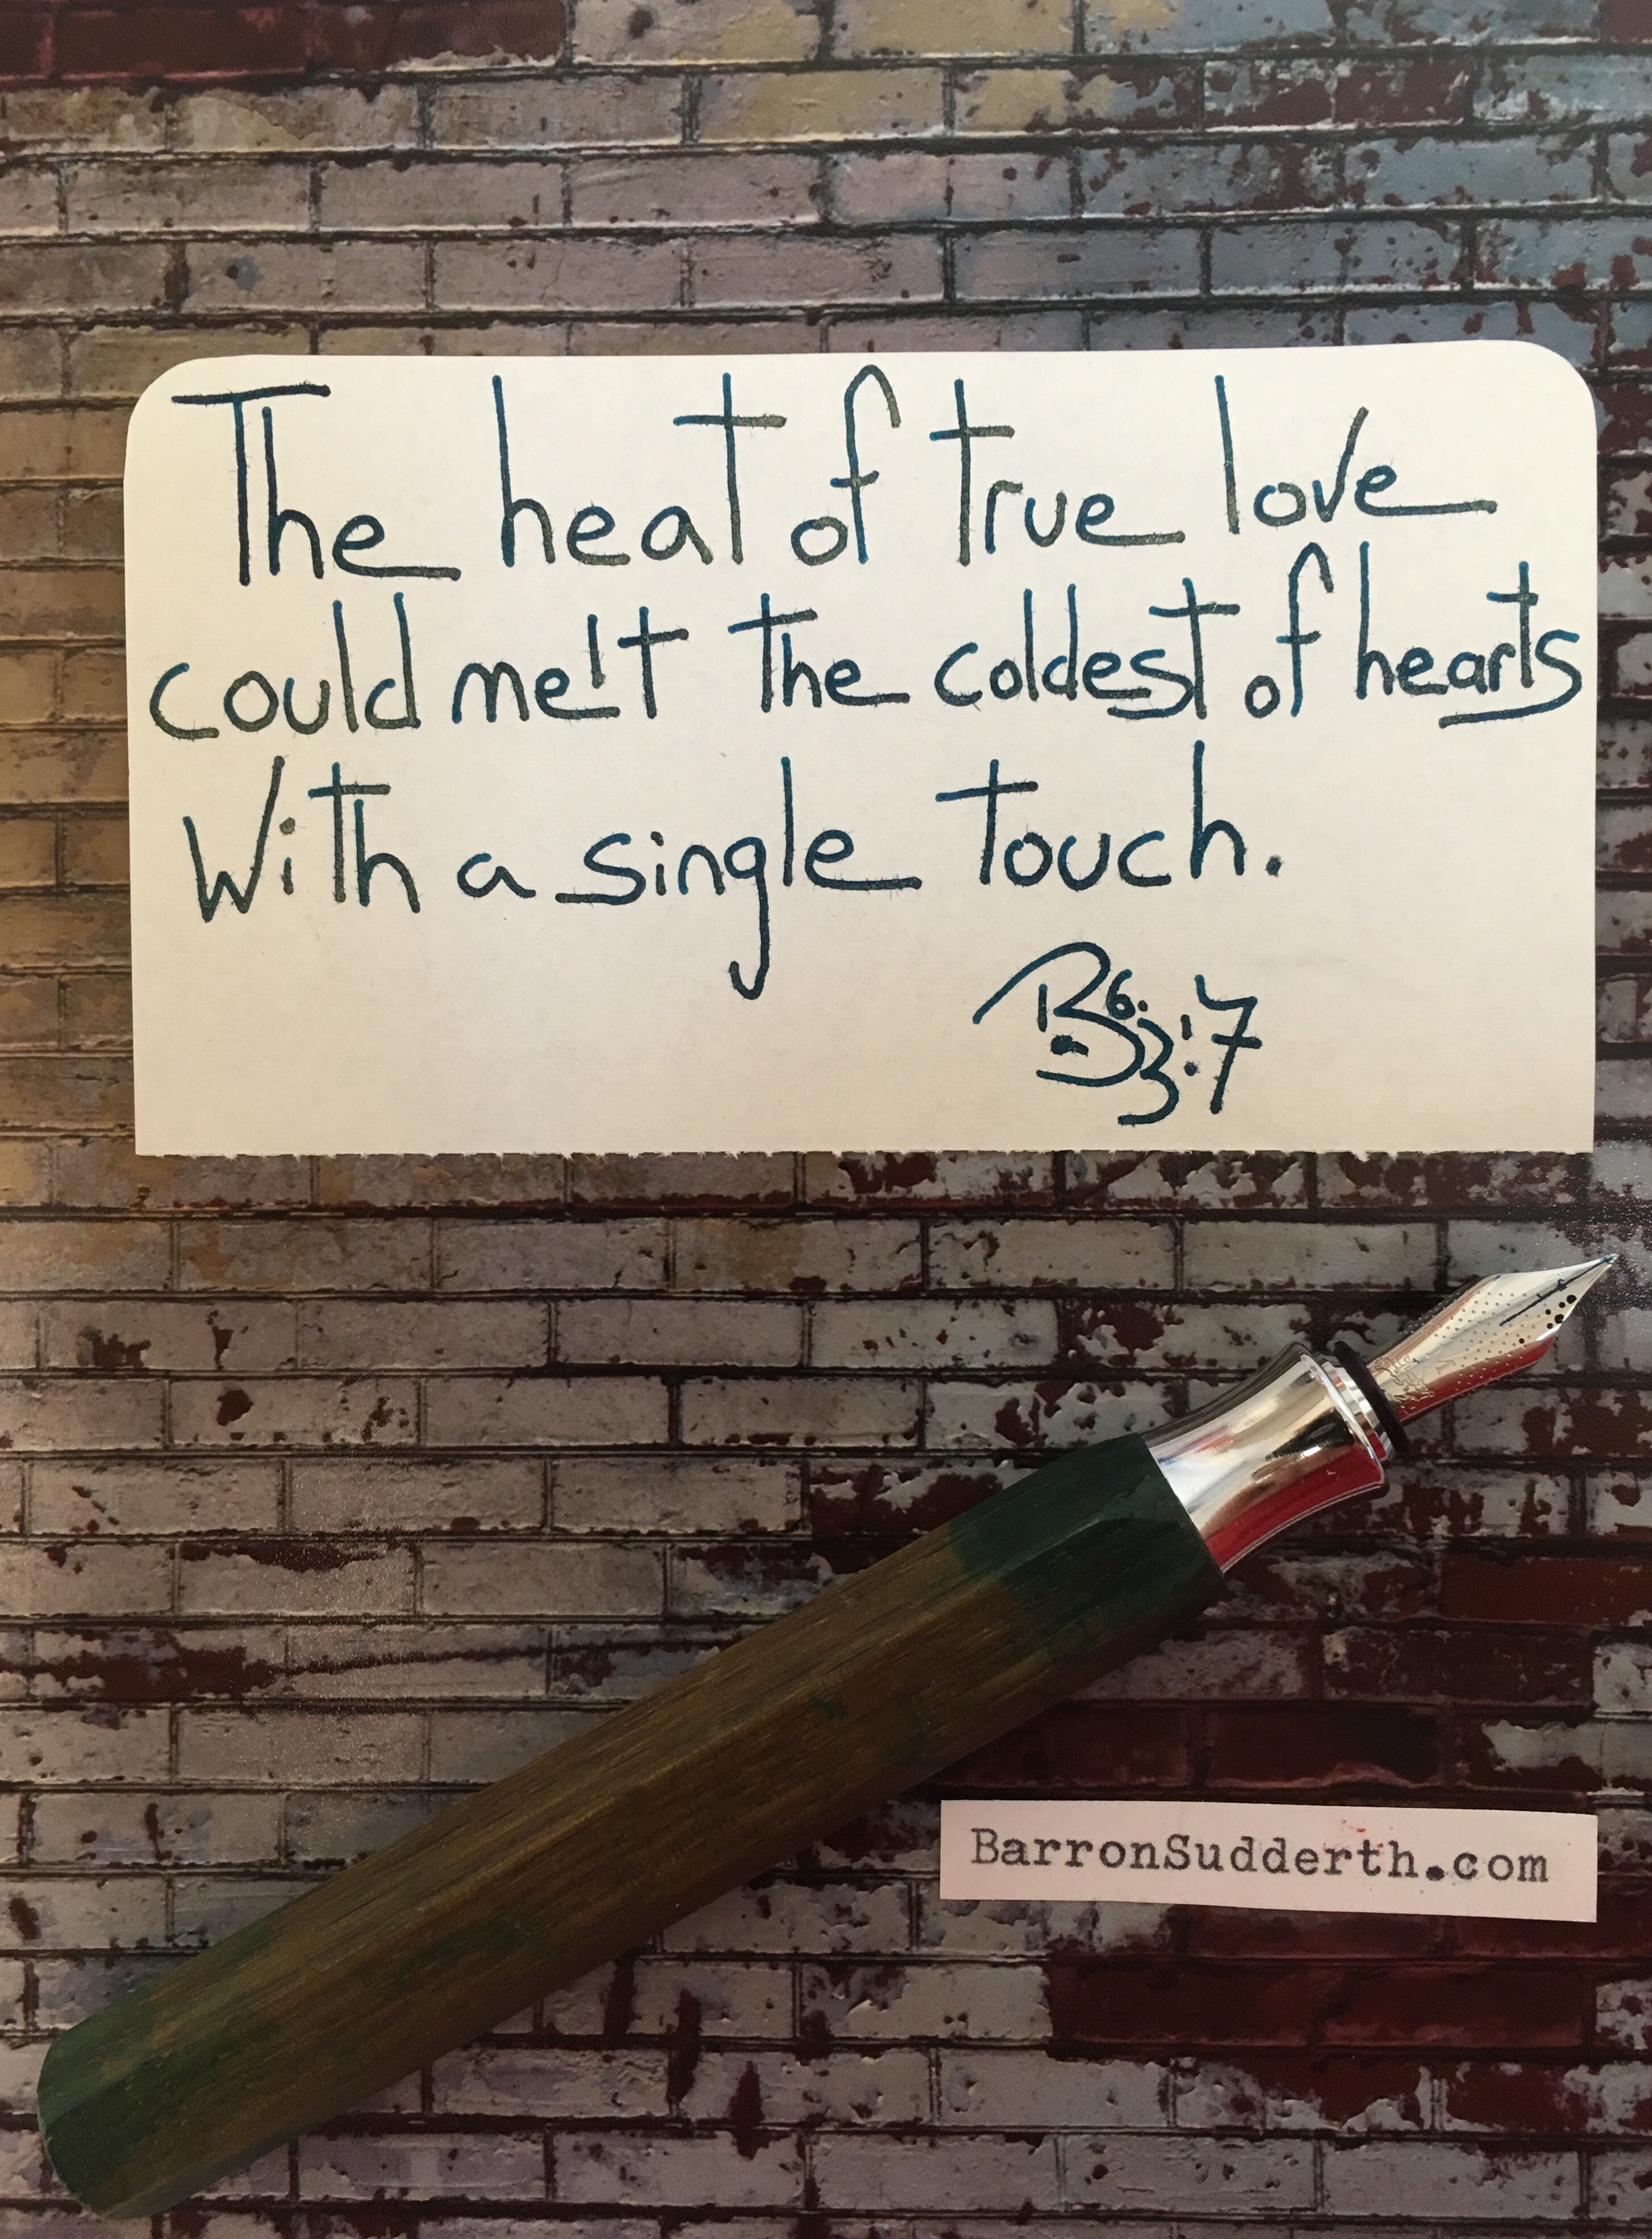 The heat of true love
could melt the coldest of hearts
With a single touch.
BarronSudderth.com